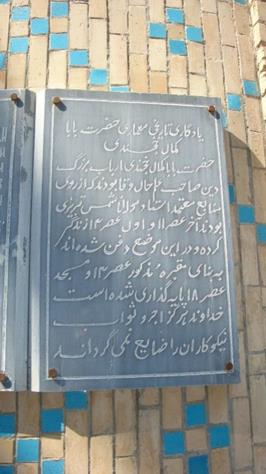 یادگاری تاریخی معماری حضرت بابا
کمال خجندی
حضرت بابا کمال خجندی ارباب بزرگ
دین صاحب حال و فا بودند که از روی
منابع معتمد استاد مولانا شمس تبریزی
بودند آخر عصر ۱۱ و اول عصر ۱۴ زندگی
کرده و در این موضع دفن شده اند
بنای مقبره مذکور عصر ۱۴ و مسجد
عصر ۱۸ پایه گذاری شده است
خداوند هرگز اجر و ثواب
نیکوکاران را ضایع نمی گرداند